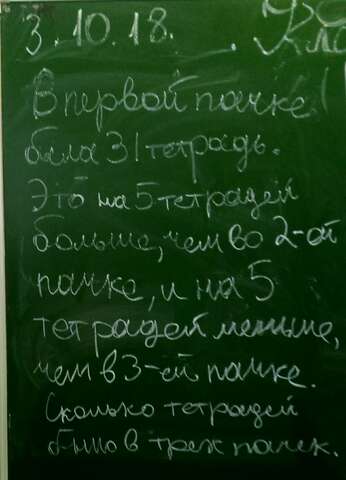 3.10.18. Кл
В первой пачке
была 31 тетрадь.
Это на 5 тетрадей
больше, чем во 2-ой
пачке, и на 5
тетрадей меньше,
чем в 3-ей пачке.
Сколько тетрадей
было в трех пачек.